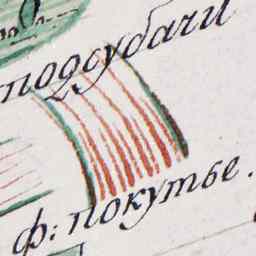 подсудачи
ф: покутье.